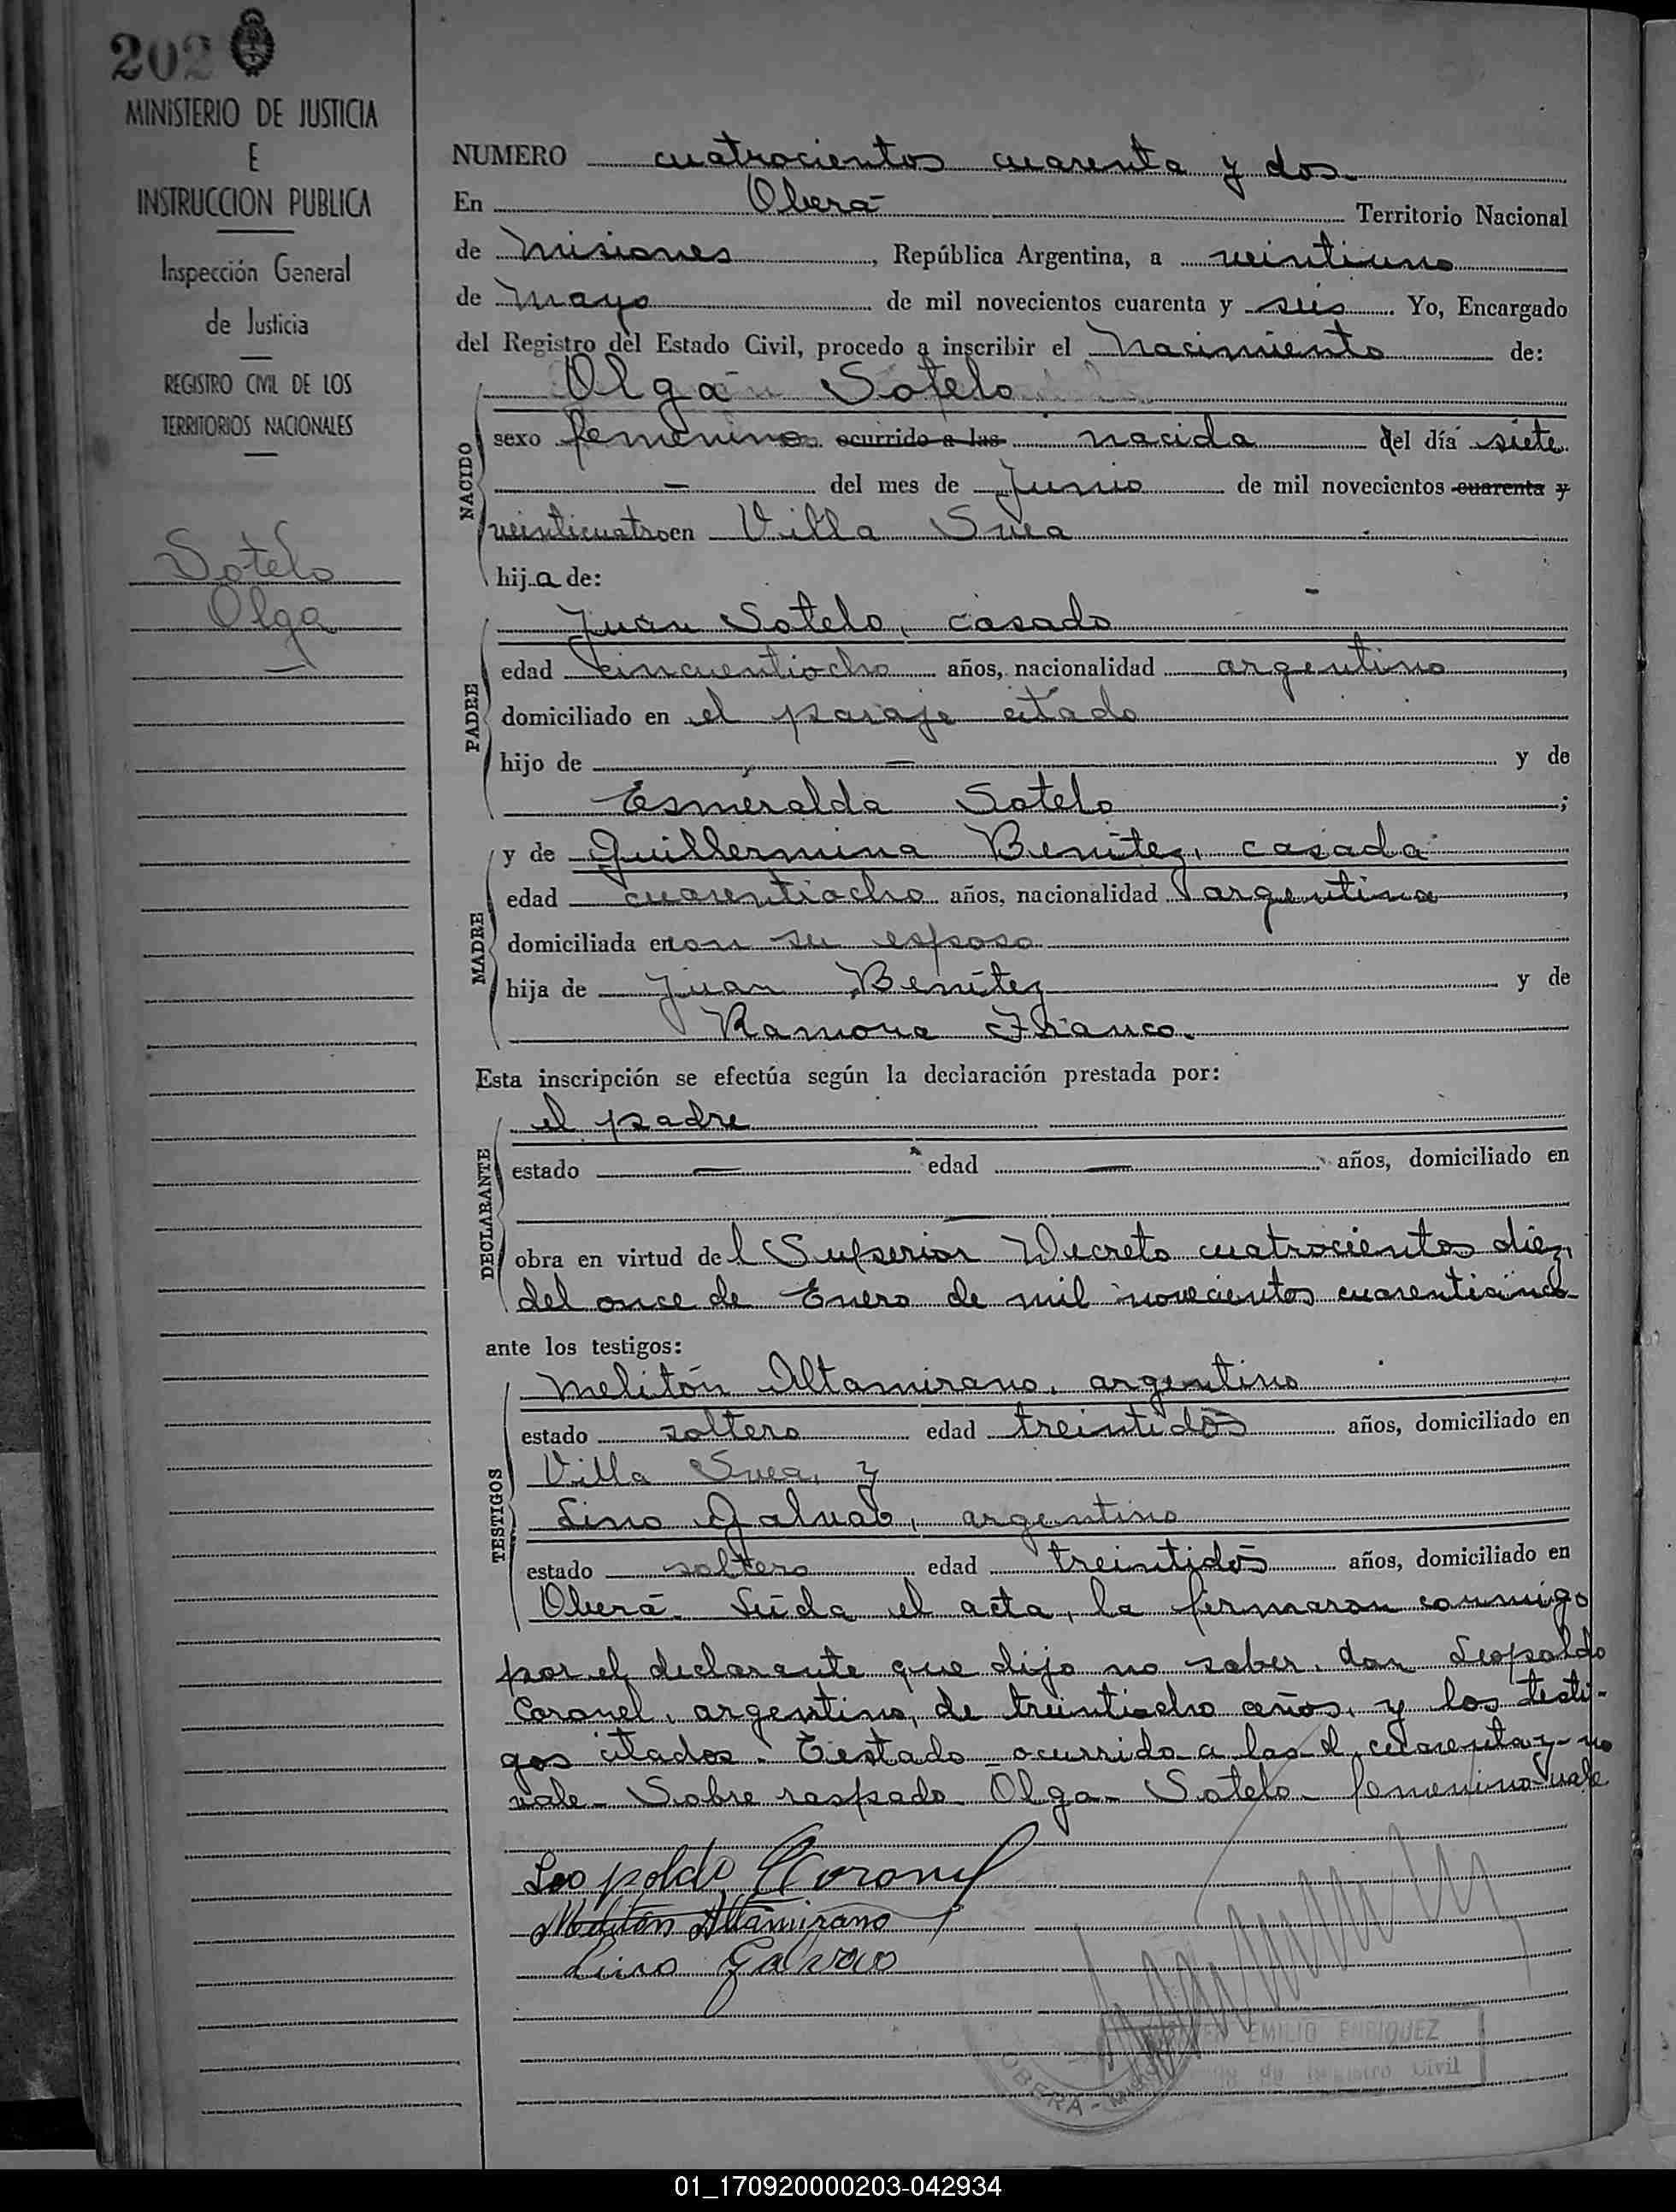 202
MINISTERIO DE JUSTICIA
E
INSTRUCCION PUBLICA
Inspección General
de Justicia
REGISTRO CIVIL DE LOS
TERRITORIOS NACIONALES
Sotelo
Olga
NUMERO cuatrocientos cuarenta y dos.
En Oberá Territorio Nacional
de Misiones, República Argentina, a veintiuno
de Mayo de mil novecientos cuarenta y seis. Yo, Encargado
del Registro del Estado Civil, procedo a inscribir el Nacimiento de:
NACIDO
Olga Sotelo
sexo femenino ocurrido a las nacida del día siete
- del mes de Junio de mil novecientos cuarenta y
veinticuatro en Villa Svea
hija de:
PADRE
Juan Sotelo, casado
edad cincuentiocho años, nacionalidad argentino,
domiciliado en el paraje citado
hijo de — y de
Esmeralda Sotelo;
MADRE
y de Guillermina Benítez, casada
edad cuarentiocho años, nacionalidad argentina,
domiciliada en con su esposo
hija de Juan Benítez y de
Ramona Franco.
Esta inscripción se efectúa según la declaración prestada por:
DECLARANTE
el padre
estado — edad — años, domiciliado en
—
obra en virtud del Superior Decreto cuatrocientos diez,
del once de Enero de mil novecientos cuarenticinco
ante los testigos:
TESTIGOS
Melitón Altamirano, argentino
estado soltero edad treintidós años, domiciliado en
Villa Svea, y
Lino Galvao, argentino
estado soltero edad treintidós años, domiciliado en
Oberá. Leída el acta, la firmaron conmigo
por el declarante que dijo no saber, don Leopoldo
Coronel, argentino, de treintiocho años, y los testi-
gos citados. Testado-ocurrido a las-d, cuarenta y-no
vale- Sobre raspado-Olga-Sotelo-femenino-vale
Leopoldo Coronel
Melitón Altamirano
Lino Galvao
EMILIO ENRIQUEZ
de Registro Civil
OBERA -
01_170920000203-042934